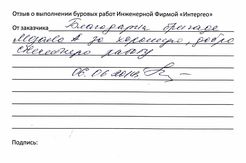 Отзыв о выполнении буровых работ Инженерной Фирмой «Интергео»
От заказчика Благодарим бригаду
за хорошую, добро
работу
06.06.2018г.
Подпись: